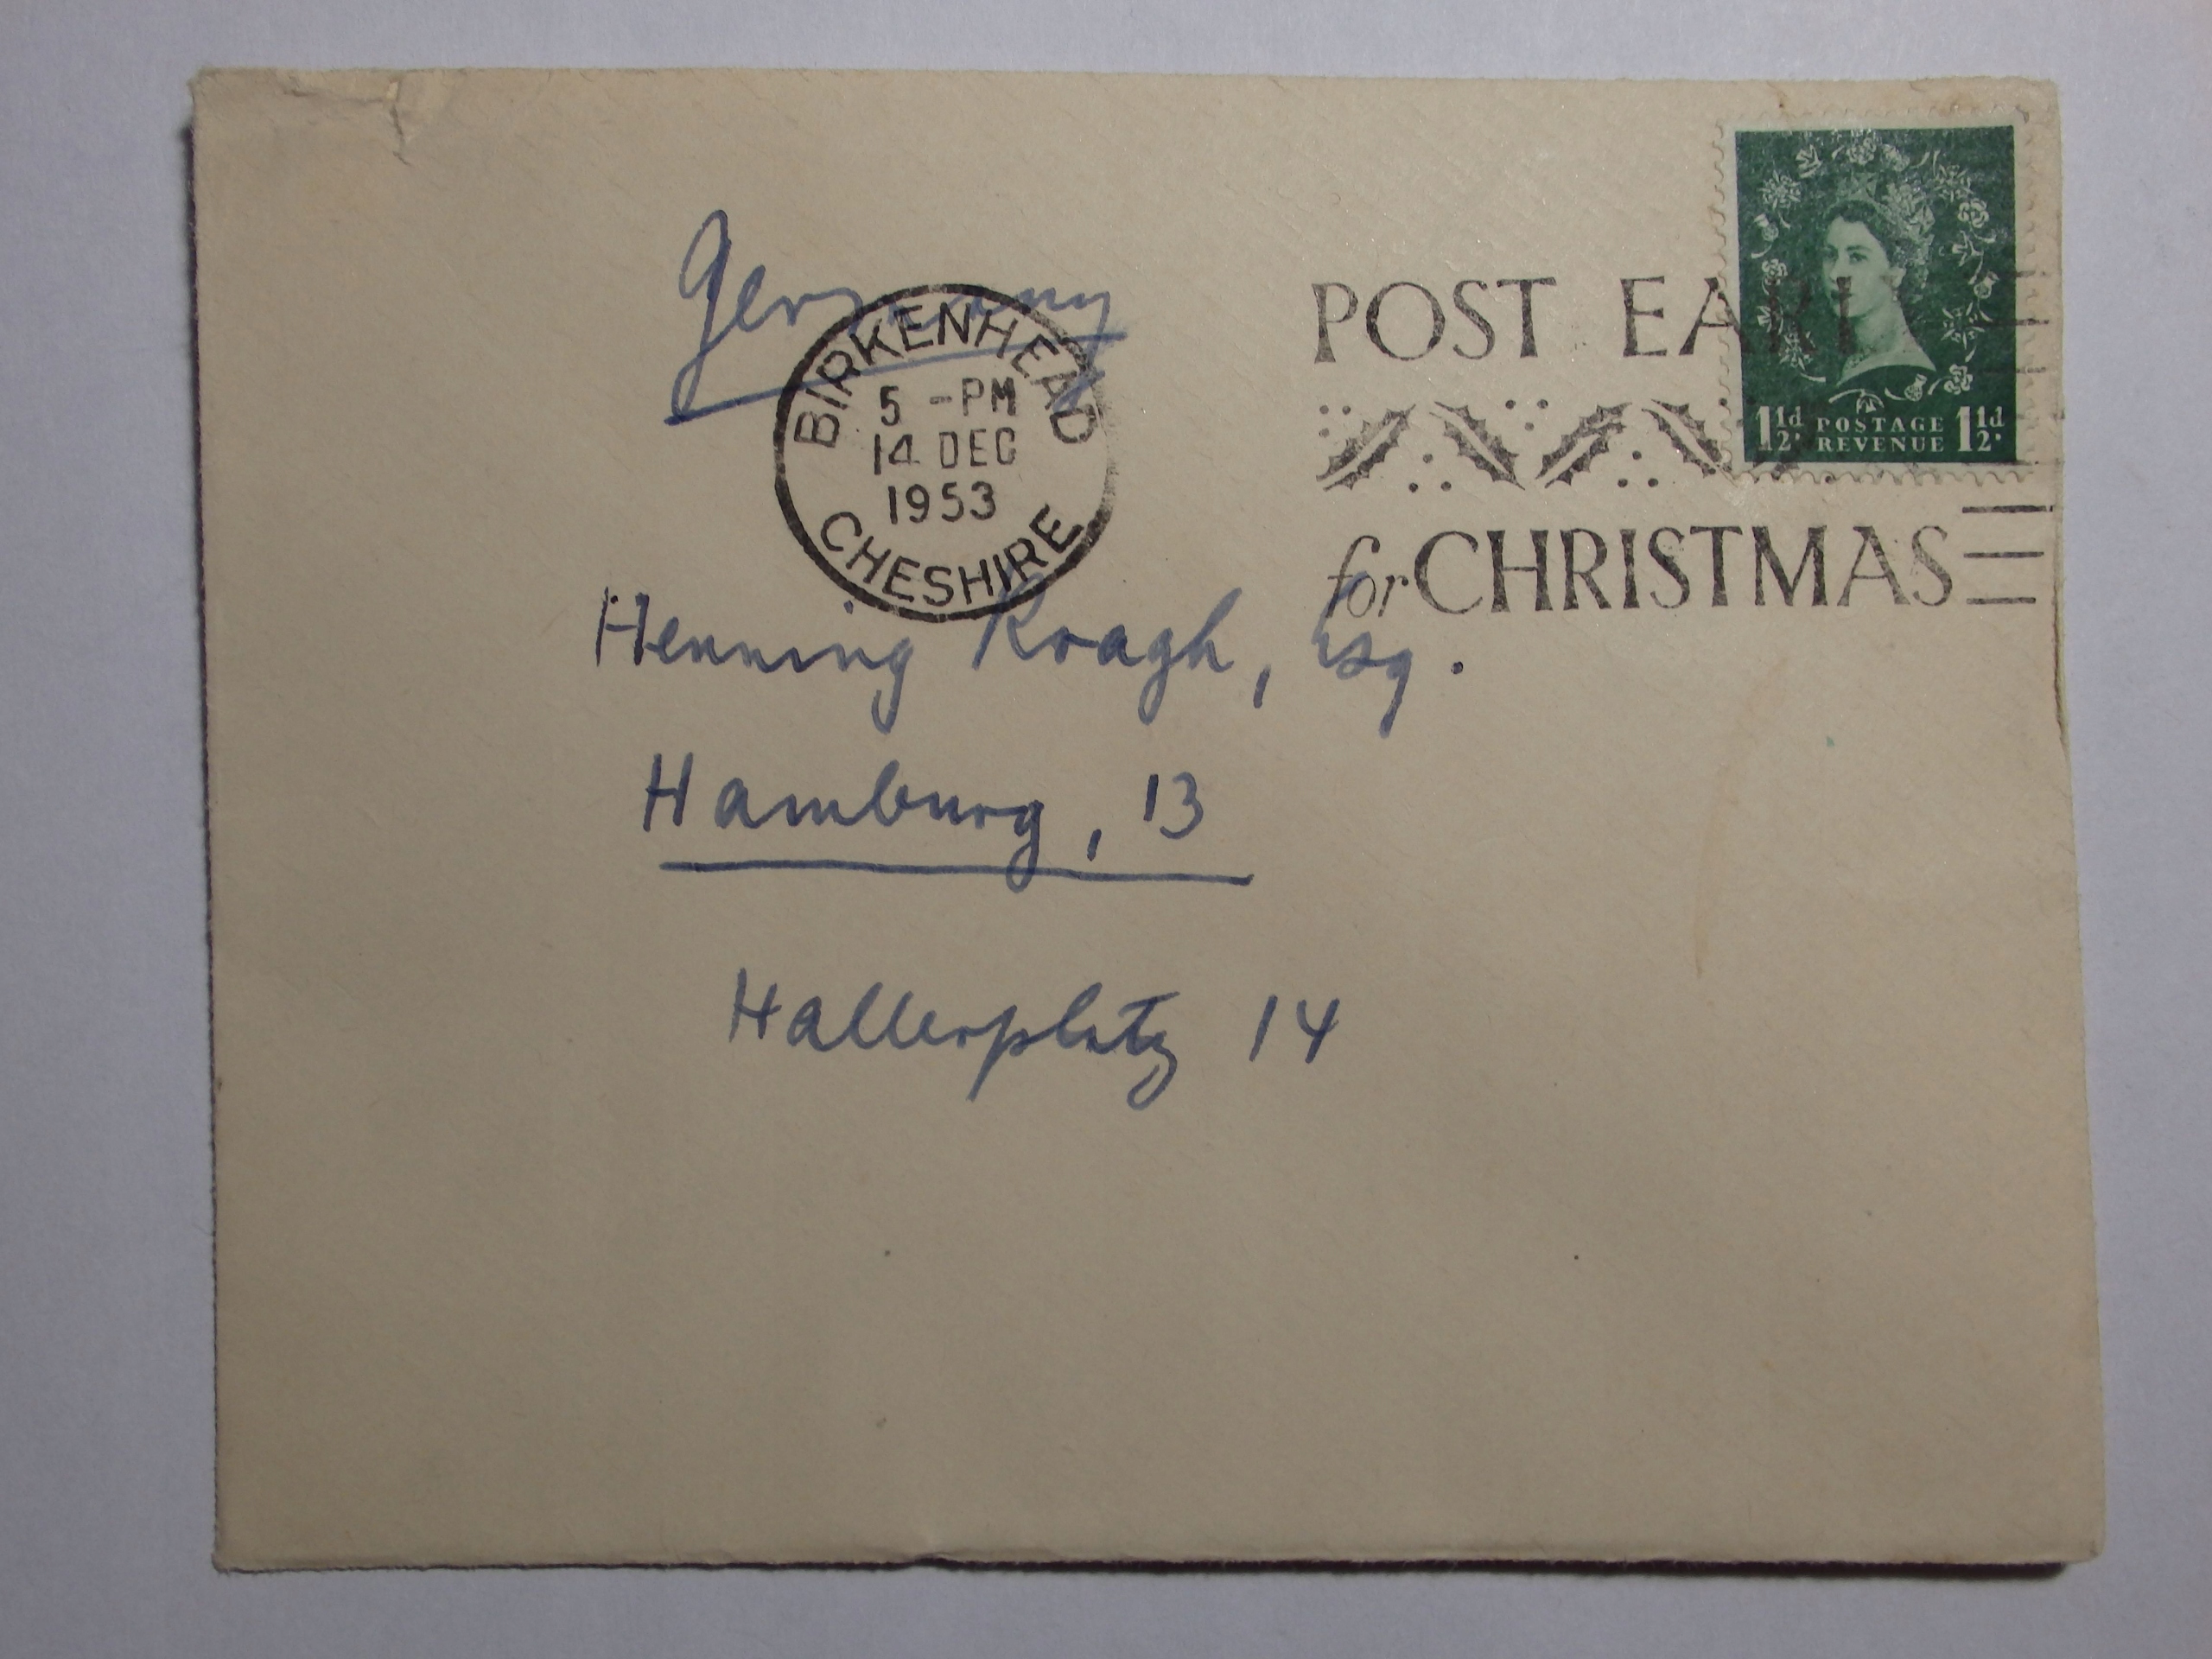 Germany
BIRKENHEAD
5 -PM
14 DEC
1953
CHESHIRE
POST EARL
for CHRISTMAS
1½d. POSTAGE REVENUE 1½d.
Henning Kragh, Esq.
Hamburg, 13
Hallerplatz 14